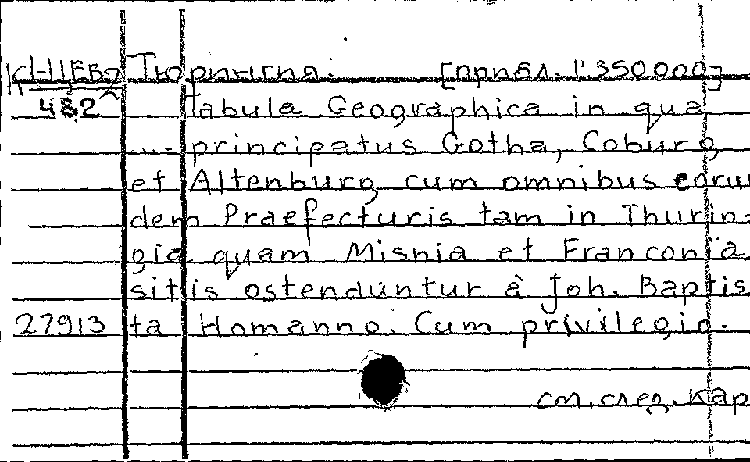 Тюрингия. [прибл. 1:350000]
482 Tabula Geographica in qua
principatus Gotha, Coburg
et Altenburg cum omnibus eorun
dem Praefecturis tam in Thurin-
gia quam Misnia et Franconia
sitis ostenduntur à Joh. Baptis
27913 ta Homanno. Cum privilegio.
см. след. кар